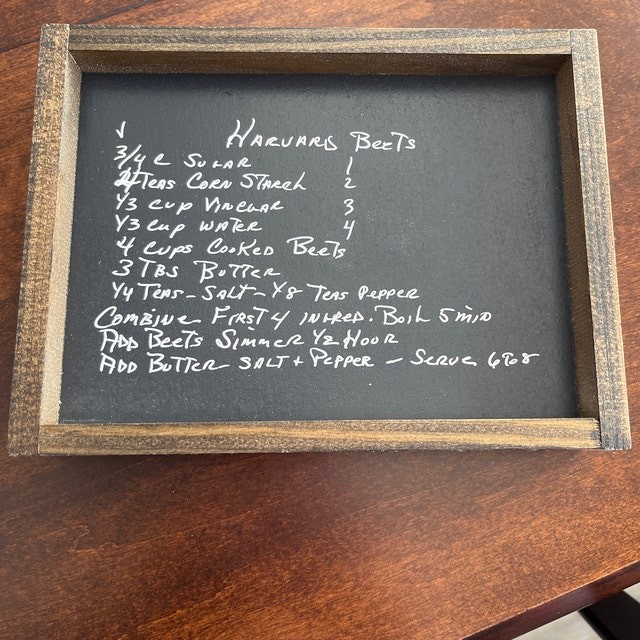 √ Harvard Beets
3/4 c Sugar 1
4 Teas Corn Starch 2
1/3 cup Vinegar 3
1/3 cup Water 4
4 cups Cooked Beets
3 TBS Butter
1/4 Teas - Salt - 1/8 Teas Pepper
Combine First 4 Ingred. Boil 5 min
Add Beets Simmer 1/2 Hour
Add Butter Salt + Pepper - Serve